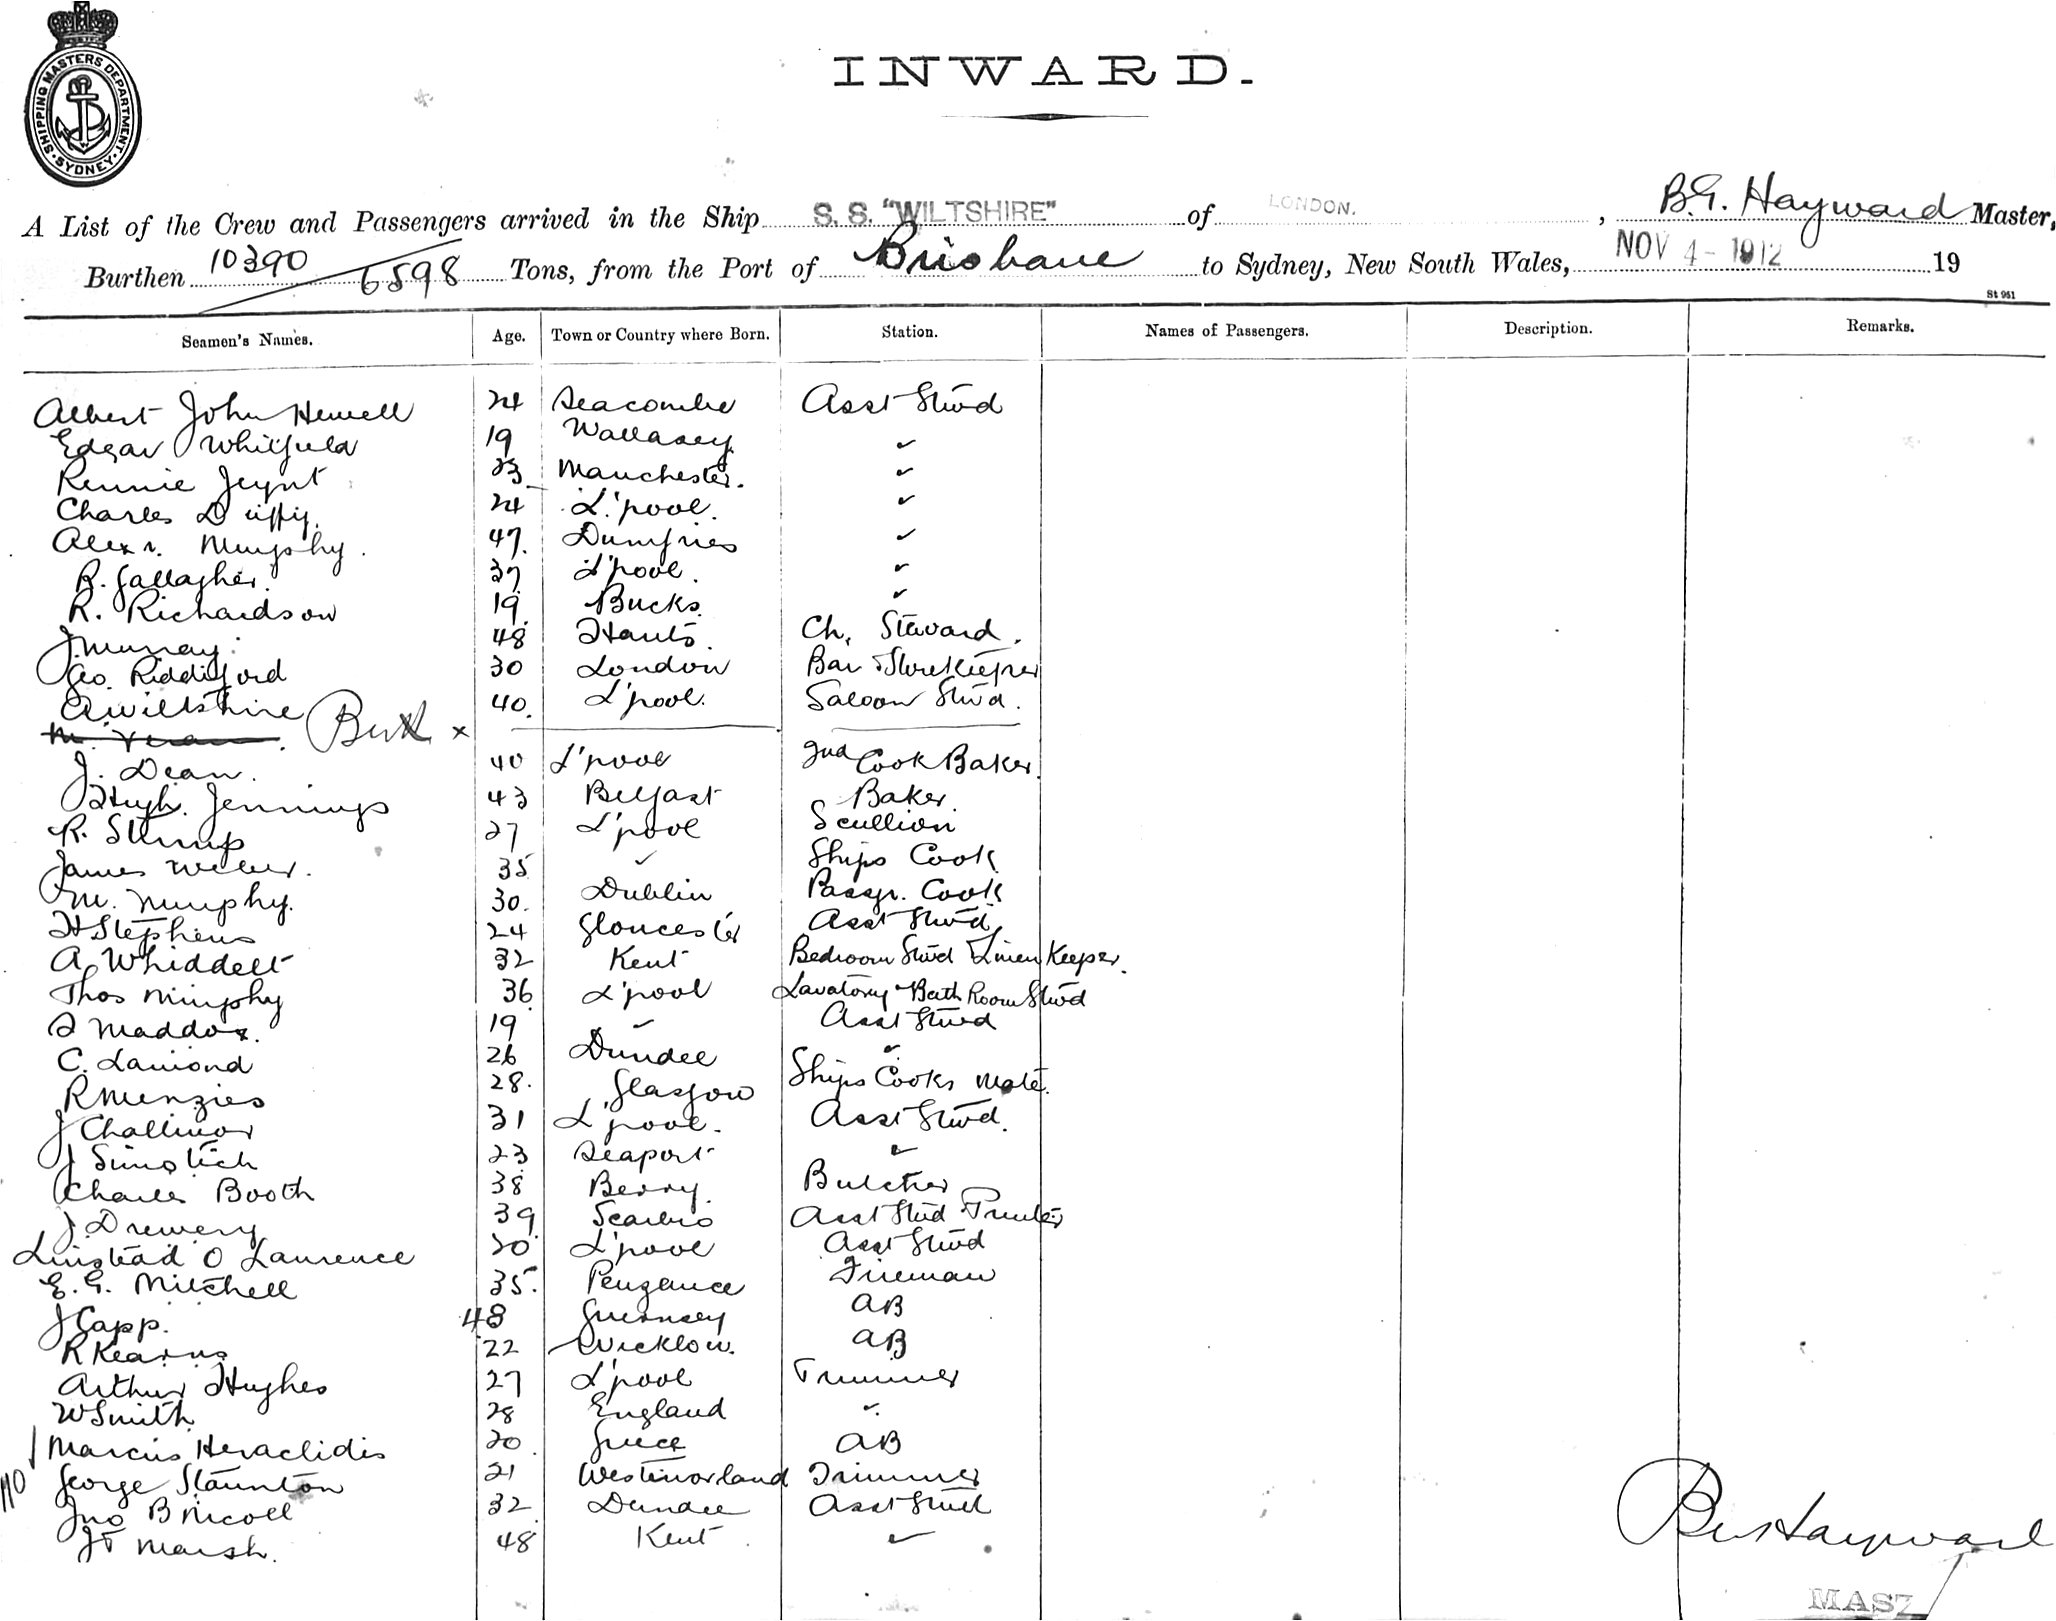 SHIPPING MASTERS DEPARTMENT · SYDNEY ·
INWARD.
A List of the Crew and Passengers arrived in the Ship S. S. "WILTSHIRE" of LONDON. , B.G. Hayward Master,
Burthen 10390 / 6598 Tons, from the Port of Brisbane to Sydney, New South Wales, NOV 4 - 1912 19
St 951
Seamen's Names. Age. Town or Country where Born. Station. Names of Passengers. Description. Remarks.
Albert John Hewell 24 Seacombe Asst Stwd
Edgar Whitfield 19 Wallasey ✓
Rennie 23 Manchester. ✓
Charles Duffy. 24 L'pool. ✓
Alexr. Murphy. 47. Dumfries ✓
R. Gallagher. 37 L'pool. ✓
R. Richardson 19. Bucks. ✓
J. Murray. 48 Hants. Ch. Steward.
Geo. Riddiford 30 London Bar Storekeeper
A Wiltshire 40. L'pool. Saloon Stwd.
M. ×
J. Dean. 40 L'pool 2nd Cook Baker.
Hugh. Jennings 43 Belfast Baker.
R. 27 L'pool Scullion
James Weber. 35 ✓ Ships Cook
M. Murphy. 30. Dublin Passgr. Cook
H Stephens 24 Gloucester Asst Stwd.
A Whiddett 32 Kent Bedroom Stwd Linen Keeper.
Thos Murphy 36 L'pool Lavatory Bath Room Stwd
Maddox. 19 ✓ Asst Stwd
C. Lamond 26 Dundee ✓
R Menzies 28. Glasgow Ships Cooks Mate.
J Challinor 31 L'pool. Asst Stwd.
J 23 Seaport ✓
Charles Booth 38 Berry. Butcher
J. Drewery 39 Scarbro Asst Stwd Printer
Linstead O Laurence 20 L'pool Asst Stwd
E. G. Mitchell 35. Penzance Fireman
J Capp. 48 Guernsey AB
R Kearns 22 Wicklow. AB
Arthur Hughes 27 L'pool Trimmer
W Smith 28 England ✓
Marcus Heraclidis 20. Greece AB
George Staunton 21 Westmorland Trimmer
Jno B Nicoll 32 Dundee Asst Stwd
Marsh. 48 Kent ✓
Hayward